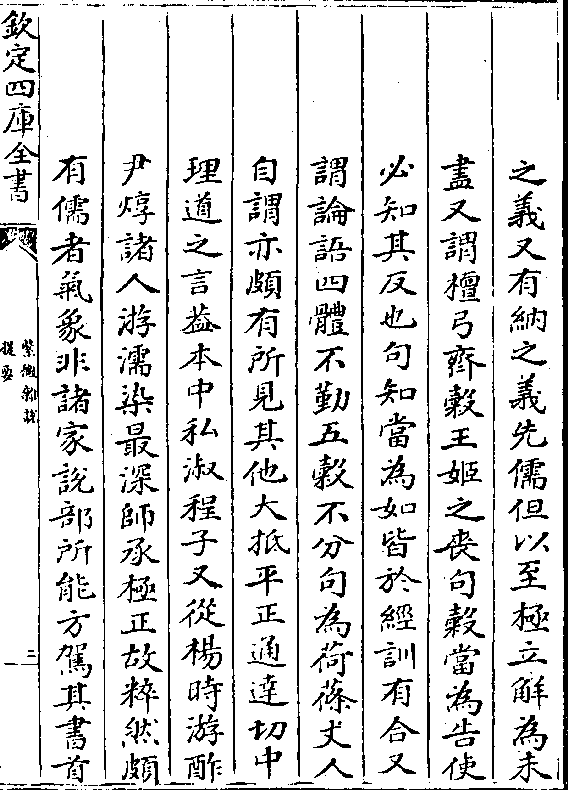 之義又有納之義先儒但以至極立解為未
盡又謂檀弓齊穀王姬之喪句穀當為告使
必知其反也句知當為如皆於經訓有合又
謂論語四體不勤五穀不分句為荷蓧丈人
自謂亦頗有所見其他大抵平正通達切中
理道之言葢本中私淑程子又從楊時游酢
尹焞諸人游濡染最深師承極正故粹然頗
有儒者氣象非諸家說部所能方駕其書首
欽定四庫全書
紫微雜說
提要
三